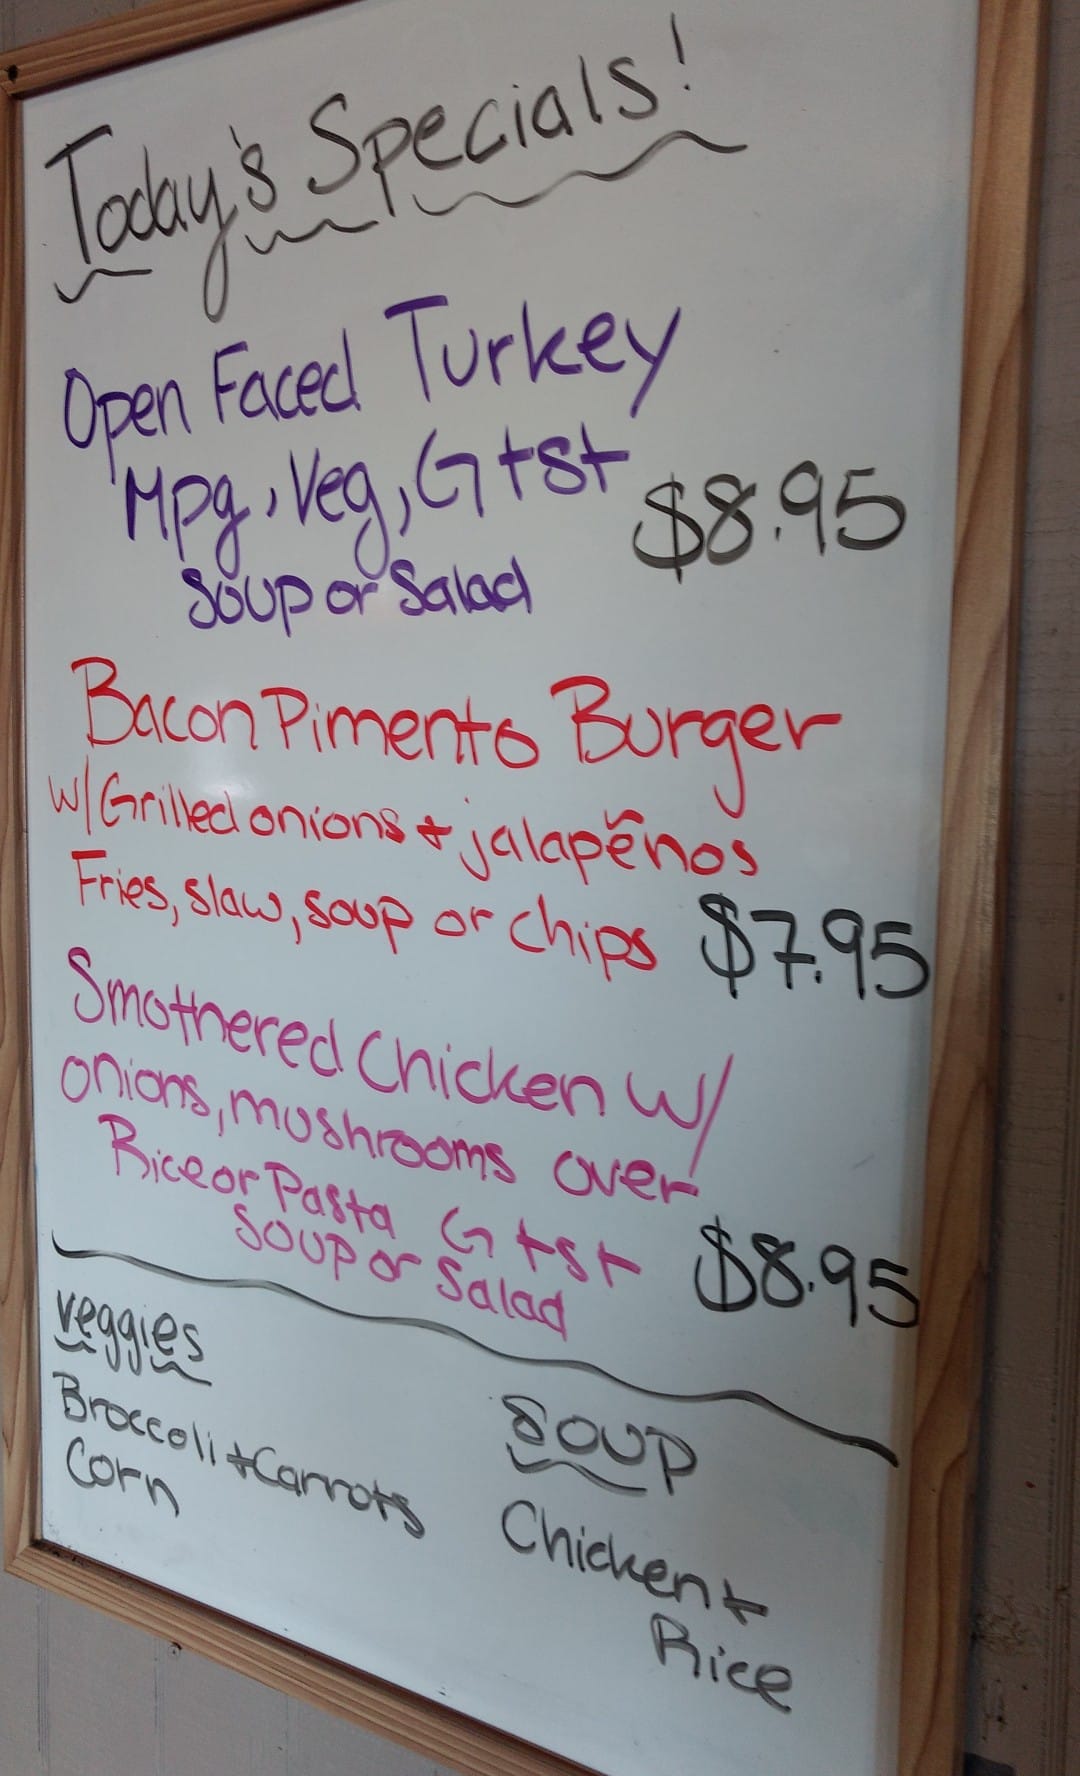 Today's Specials!
Open Faced Turkey
Mpg, Veg, G tst
Soup or Salad
$8.95
Bacon Pimento Burger
w/ Grilled onions + jalapeños
Fries, slaw, soup or chips $7.95
Smothered Chicken w/
onions, mushrooms over
Rice or Pasta G tst
Soup or Salad
$8.95
veggies
Broccoli + Carrots
Corn
Soup
Chicken +
Rice